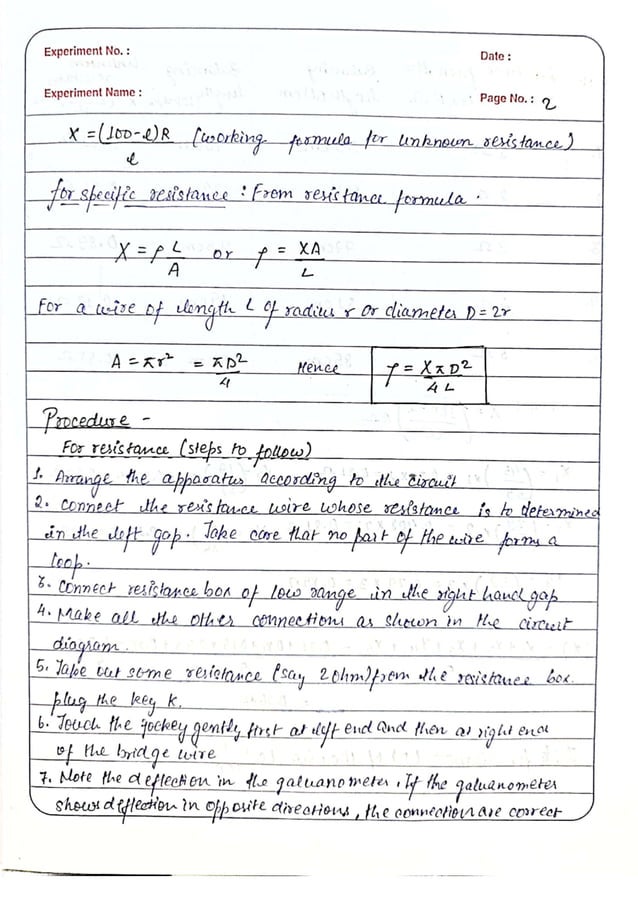 Experiment No. :
Date :
Experiment Name :
Page No. : 2
X = (100-l)R / l (working formula for unknown resistance)
for specific resistance : From resistance formula .
X = ρ L/A or ρ = XA/L
For a wire of length L of radius r or diameter D = 2r
A = πr² = πD²/4 Hence ρ = XπD²/4L
Procedure -
For resistance (steps to follow)
1. Arrange the apparatus according to the circuit
2. connect the resistance wire whose resistance is to determined
in the left gap. Take care that no part of the wire forms a
loop.
3. Connect resistance box of low range in the right hand gap
4. Make all the other connections as shown in the circuit
diagram.
5. Take out some resistance (say 2 ohm) from the resistance box
plug the key K.
6. Touch the jockey gently first at left end and then at right end
of the bridge wire
7. Note the deflection in the galvanometer. If the galvanometer
shows deflection in opposite directions, the connection are correct